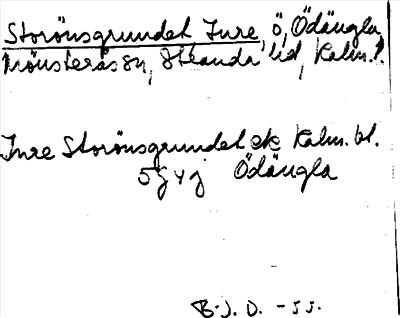 Storönsgrundet Inre, ö, Ödängla,
Mönsterås sn, Stranda hd, Kalm. l.
Inre Storönsgrundet ek Kalm. bl.
5g4j Ödängla
B.J.D. -55.